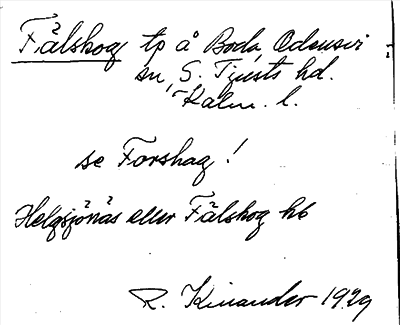 Fälskog tp å Boda, Odensvi
sn, S. Tjusts hd.
Kalm. l.
se Forshag!
Helgsjönäs eller Fälskog hb
R. Kinander 1929